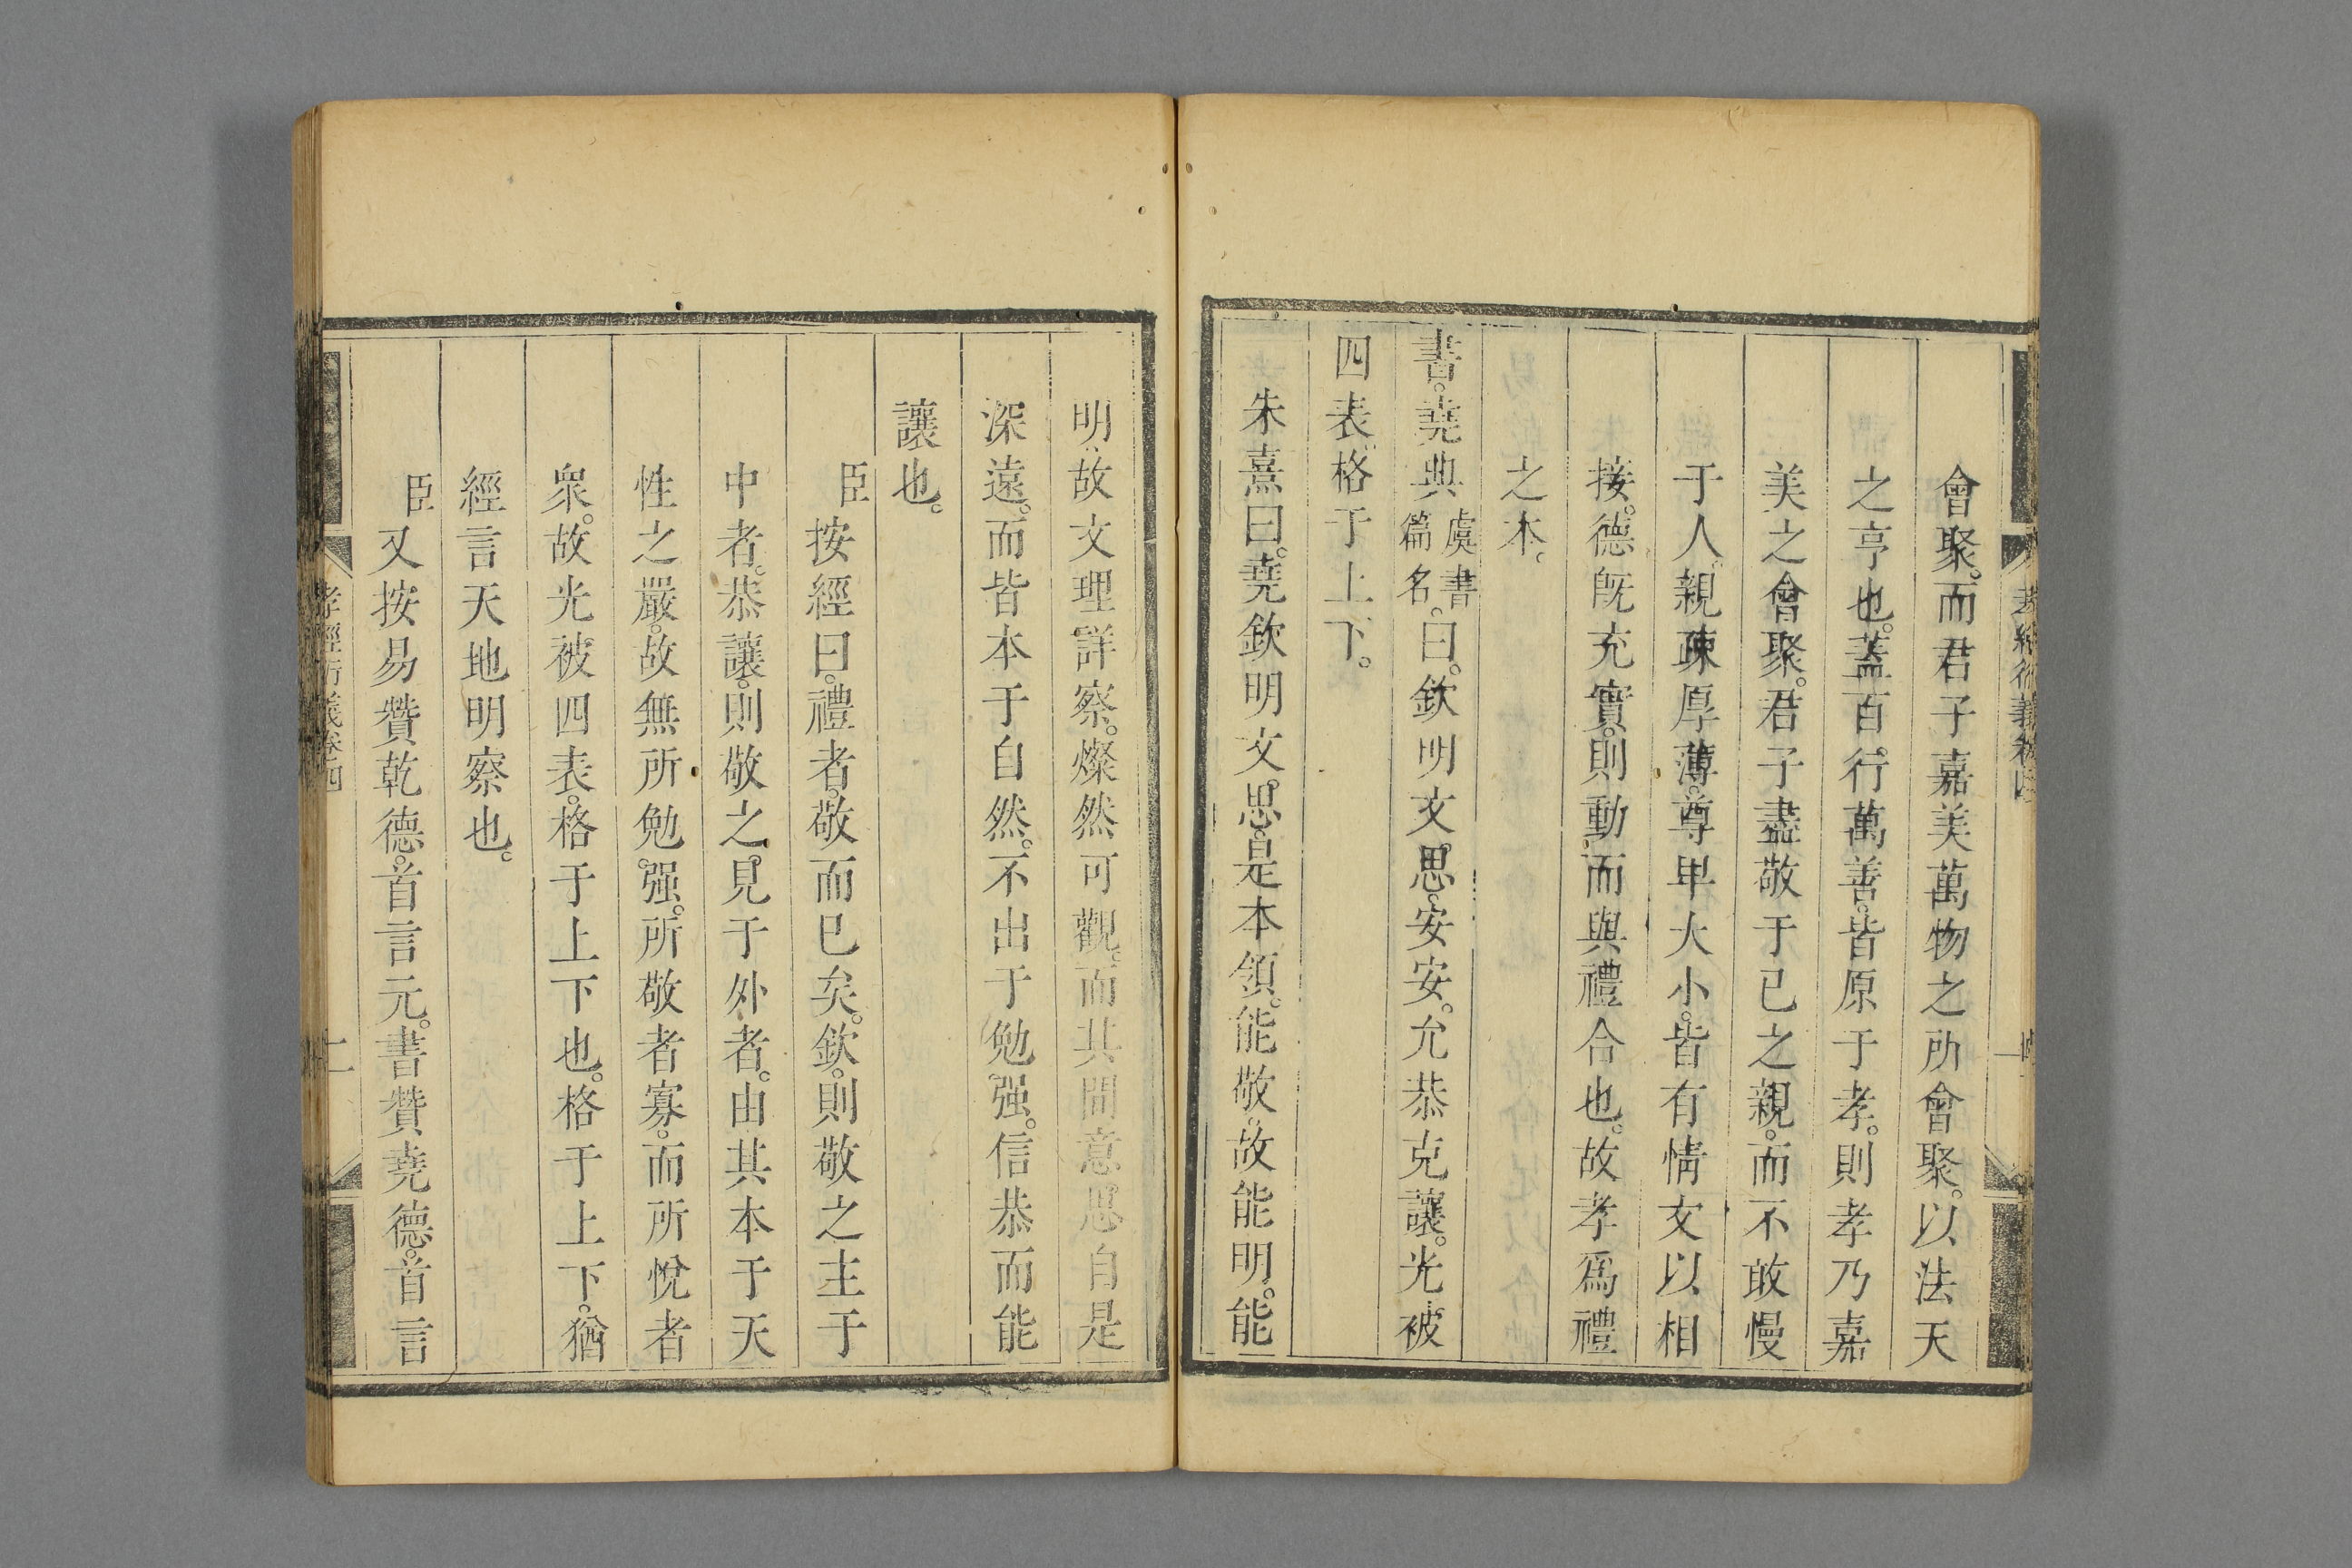 會聚。而君子嘉美萬物之所會聚。以法天
之亨也。蓋百行萬善。皆原于孝。則孝乃嘉
美之會聚。君子盡敬于已之親。而不敢慢
于人。親疎厚薄。尊卑大小。皆有情文以相
接。德旣充實。則動而與禮合也。故孝爲禮
之本。
書。堯典虞書篇名。曰。欽明文思。安安。允恭克讓。光被
四表。格于上下。
朱熹曰。堯欽明文思。是本領。能敬。故能明。能
明。故文理詳察。燦然可觀。而其間意思自是
深遠。而皆本于自然。不出于勉强。信恭而能
讓也。
臣按經曰。禮者。敬而已矣。欽。則敬之主于
中者。恭讓。則敬之見于外者。由其本于天
性之嚴。故無所勉强。所敬者寡。而所悅者
衆。故光被四表。格于上下也。格于上下。猶
經言天地明察也。
臣又按易贊乾德。首言元。書贊堯德。首言
孝經衍義卷四
二